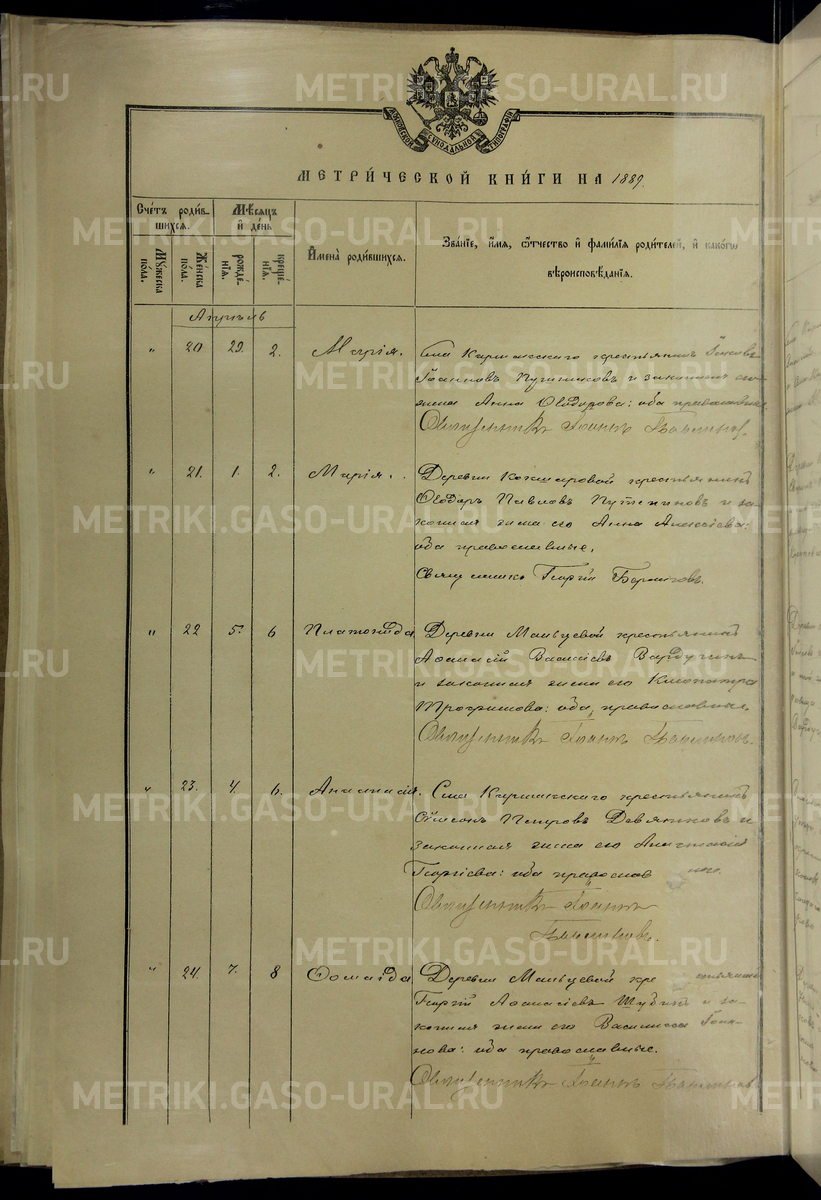 МОСКОВСКОЙ СѴНОДАЛЬНОЙ ТИПОГРАФІИ
МЕТРИ́ЧЕСКОЙ КНИ́ГИ НА 1889.
Сче́тъ роди́в-
шихся.
Му́жеска по́ла.
Же́нска по́ла.
Мѣ́сяцъ
и҆ де́нь
рожде́-
нїя.
креще́-
нїя.
И҆мена̀ роди́вшихся.
Зва́нїе, и҆́мя, ѻ҆́тчество и҆ фами́лїя роди́телей, и҆ како́гѡ
вѣроисповѣ́данїя.
Апрѣль
" 20 29. 2. Марія.
Села крестьянинъ
Іоанновъ и законная его
жена Анна Ѳеодорова: оба православные
Священникъ Іоаннъ
" 21. 1. 2. Марія.
Деревни крестьянинъ
Ѳеодоръ Павловъ и за-
конная жена его Анна Алексіева:
оба православные.
Священникъ Георгій
" 22 5. 6 Платонида
Деревни Мальцевой крестьянинъ
Аѳанасій Василіевъ
и законная жена его Клеопатра
Трофимова: оба православные.
Священникъ Іоаннъ
" 23. 4. 6. Анастасія.
Села крестьянинъ
Сѵмеонъ Петровъ Девятковъ и
законная жена его Анастасія
Георгіева: оба православ
Священникъ Іоаннъ
" 24. 7. 8 Ѳомаида
Деревни Мальцевой кре
Георгій Аѳанасіевъ Шубинъ и за-
конная жена его Василисса Іоан-
нова: оба православные.
Священникъ Іоаннъ
METRIKI.GASO-URAL.RU